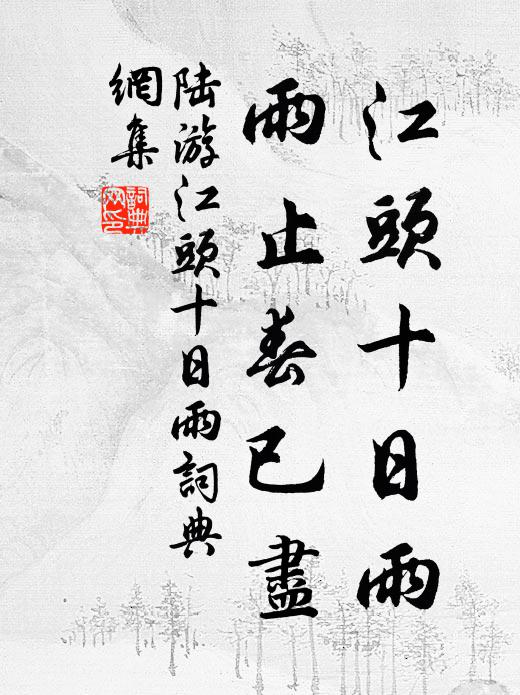 江頭十日雨
雨止春已盡
陸游江頭十日雨詞典
網集
詞典
网印